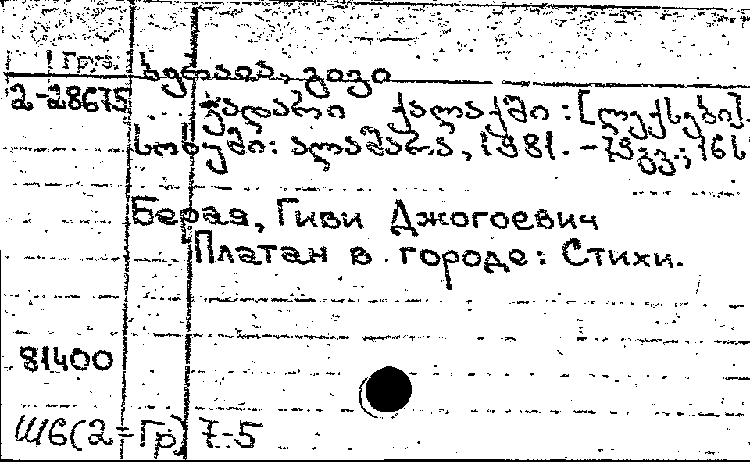 Груз.
ბერაია, გივი
2-28675 ჭადარი ქალაქში : [ლექსები].
სოხუმი : ალაშარა, 1981. – 79 გვ.;
Берая, Гиви Джогоевич
Платан в городе : Стихи.
81400
Ш6(2=Гр) 7-5